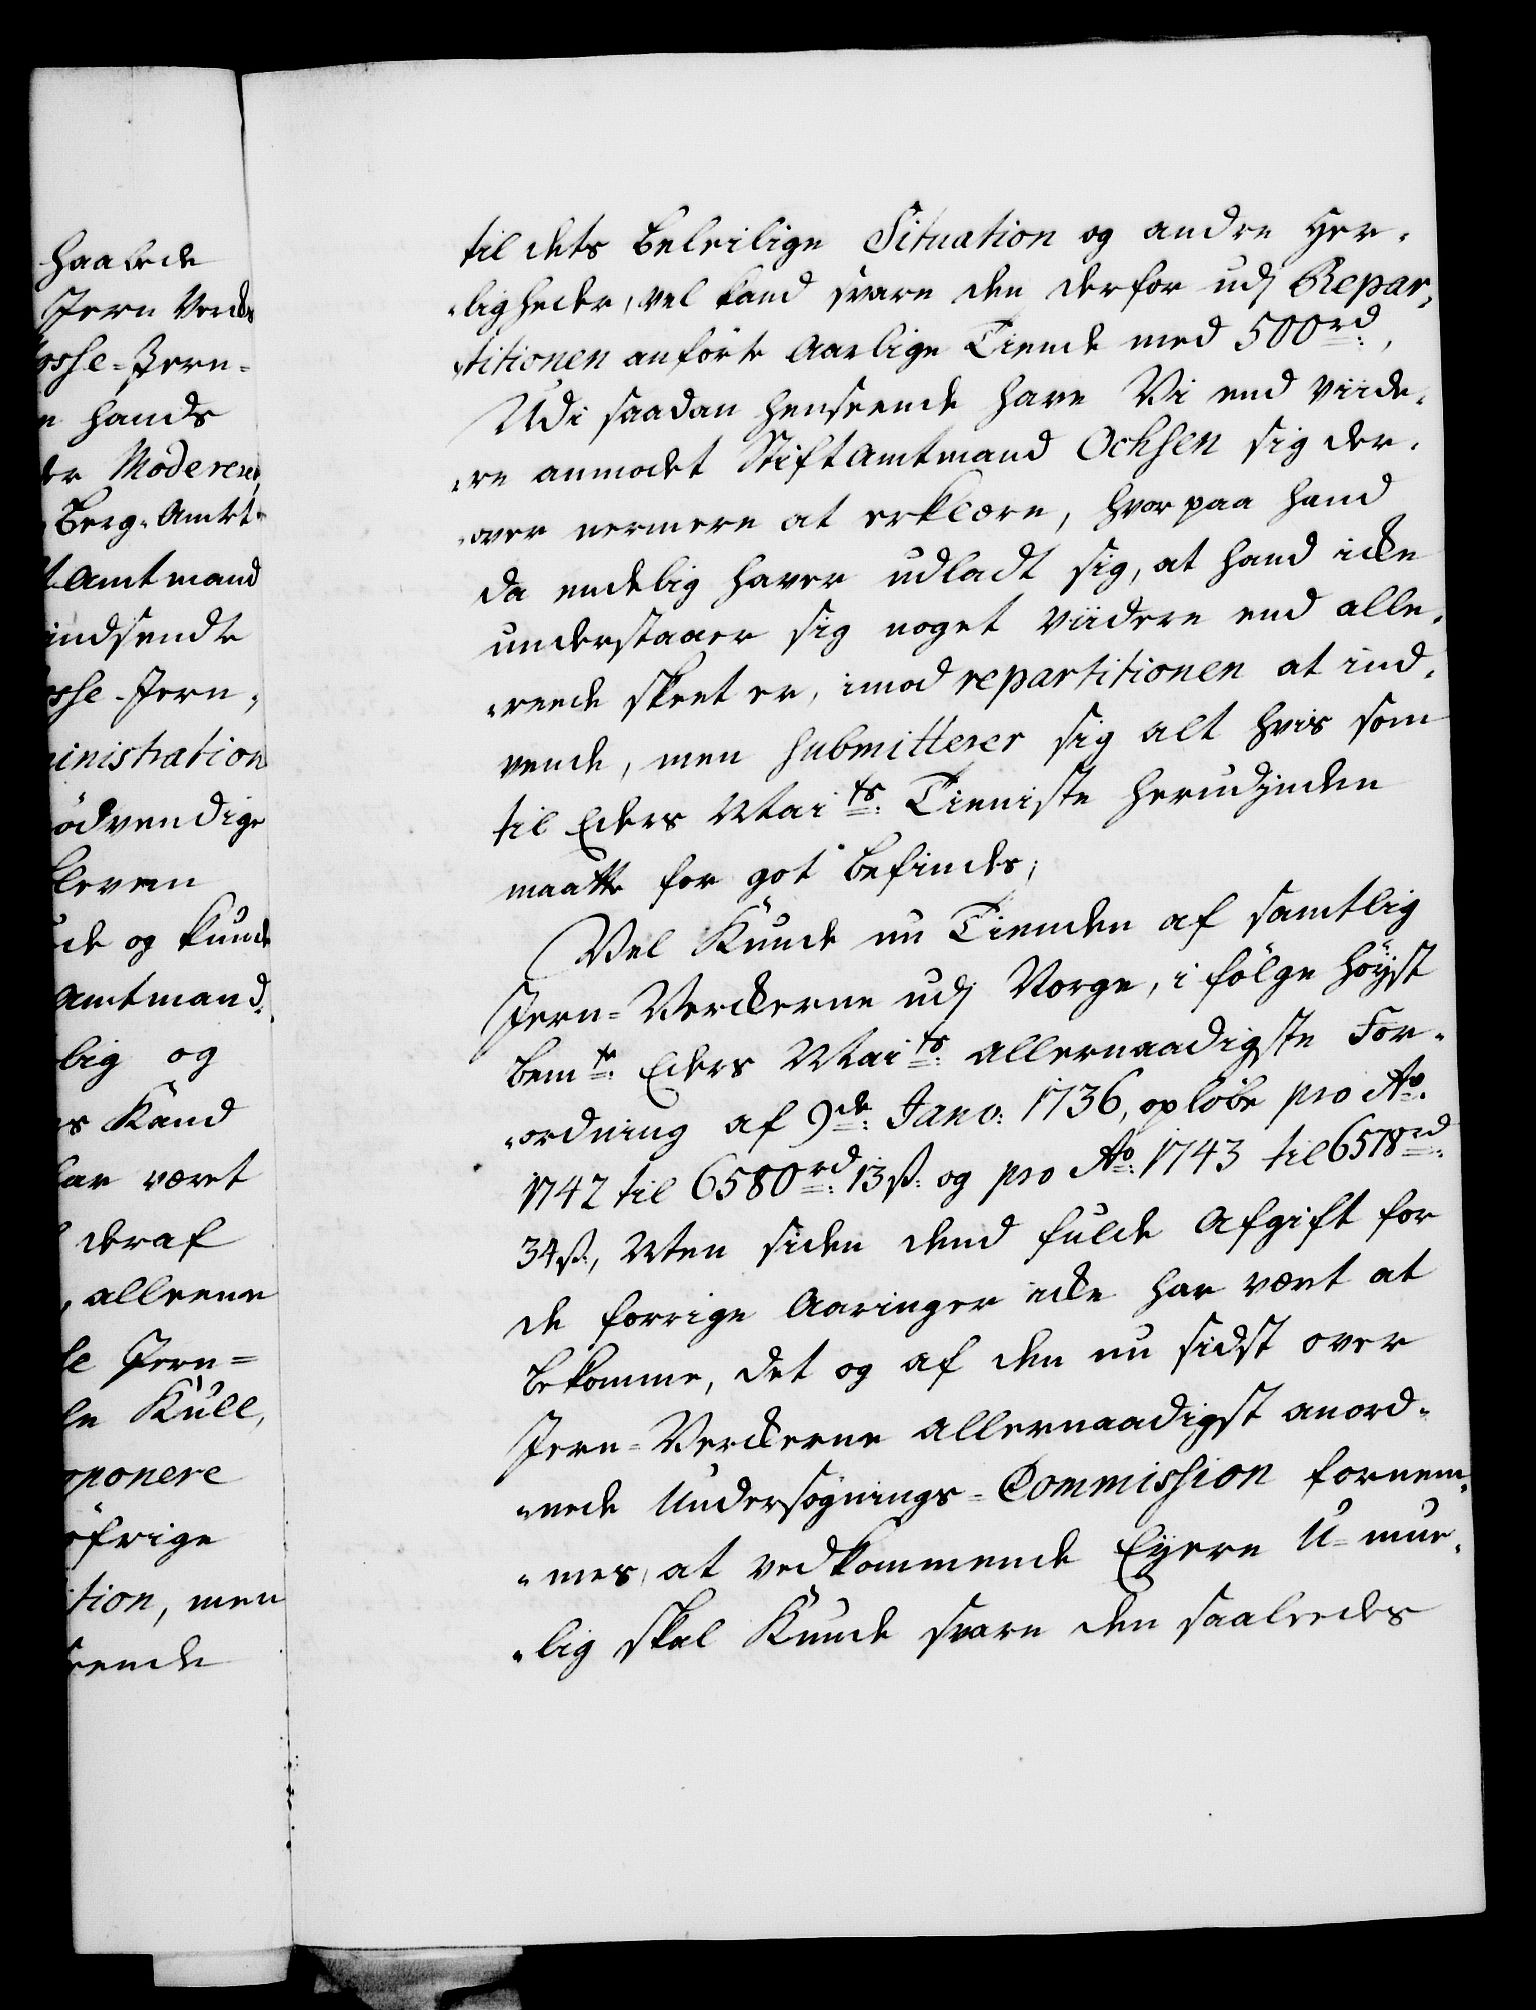 haalede
Jern Verks
osse-Jern-
n hands
der Moderere,
Berg-Amtet
tamtmand
indsendte
osse-Jern,
inistration
ödvendige
bleven
de og kunde
amtmand
lig og
es Kand
har været
deraf
, alleene
le Jern=
le Kull,
oponere
öfrige
tion, men
eende
til dets beleilige Situation og andre Her-
ligheder, vel kand svare den derfor udj Repar-
titionen anförte Aarlige Tiende med 500 rd,
Udi saadan henseende have Vi end viide-
re anmodet Stiftamtmand Ochsen sig der-
over nermere at erklære, hvorpaa hand
da endelig haver udladt sig, at hand icke
understaaer sig noget viidere end alle-
reede skeet er, imod repartitionen at ind-
vende, men submitterer sig alt hvis som
til Eders Maits: Tieniste herudjnden
maatte for got befindes;
Vel Kunde nu Tienden af samtlig
Jern-Verckerne udj Norge, i fölge höyst
bemte: Eders Maits: allernaadigste For-
ordning af 9de: Janv: 1736, oplöbe pro Ao:
1742 til 6580 rd: 13 ß: og pro Ao: 1743 til 6578 rd:
34 ß:, Men siden dend fulde Afgift for
de forrige Aaringer icke har været at
bekomme, det og af den nu sidst over
Jern-Verckerne allernaadigst anord-
nede Undersögnings-Commission fornem-
mes, at vedkommende Eyere U-mue-
lig skal Kunde svare den saaledes